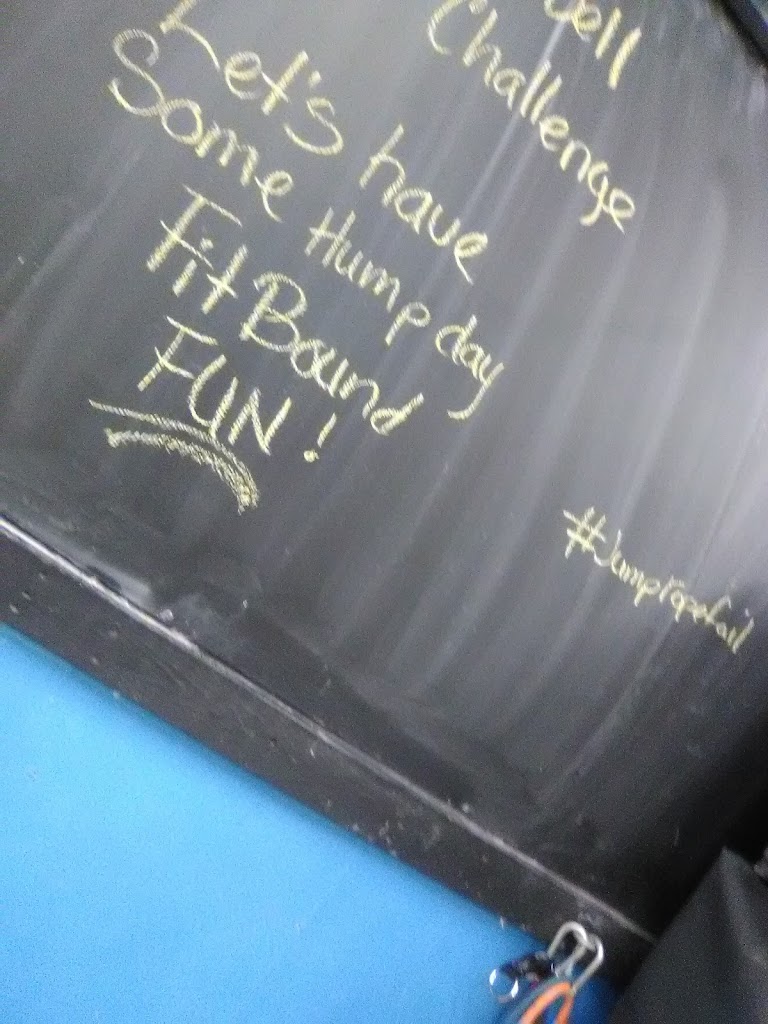 Challenge
Let's have
Some Humpday
FitBound
FUN!
#Jumpropefail